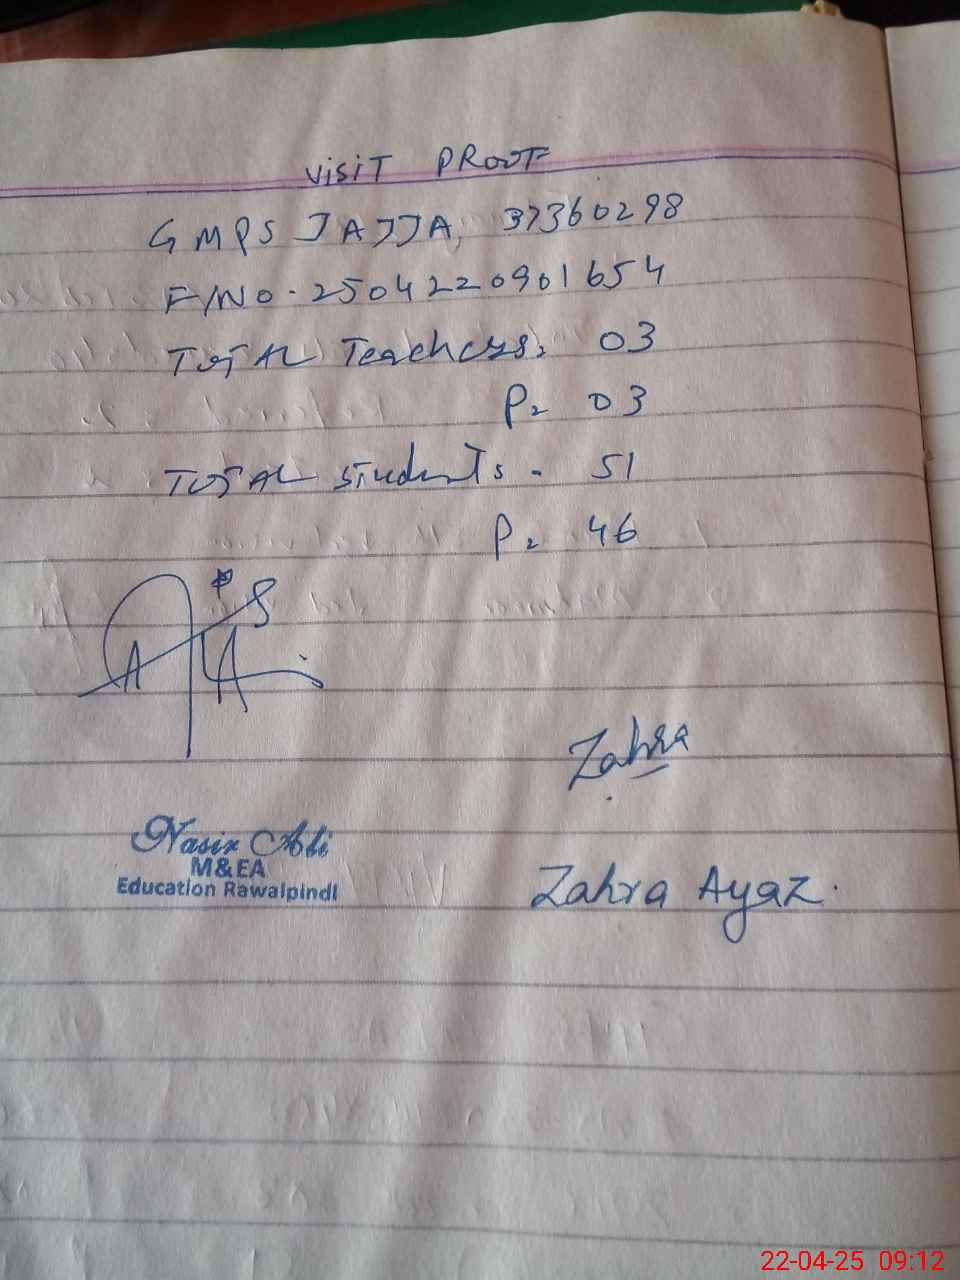 VISIT PROOF
GMPS JAJJA, 37360298
F/NO. 2504220901654
TOTAL Teachers. 03
P. 03
TOTAL students. 51
P. 46
Zahra
Nasir Ali
M&EA
Education Rawalpindi
Zahra Ayaz.
22-04-25 09:12